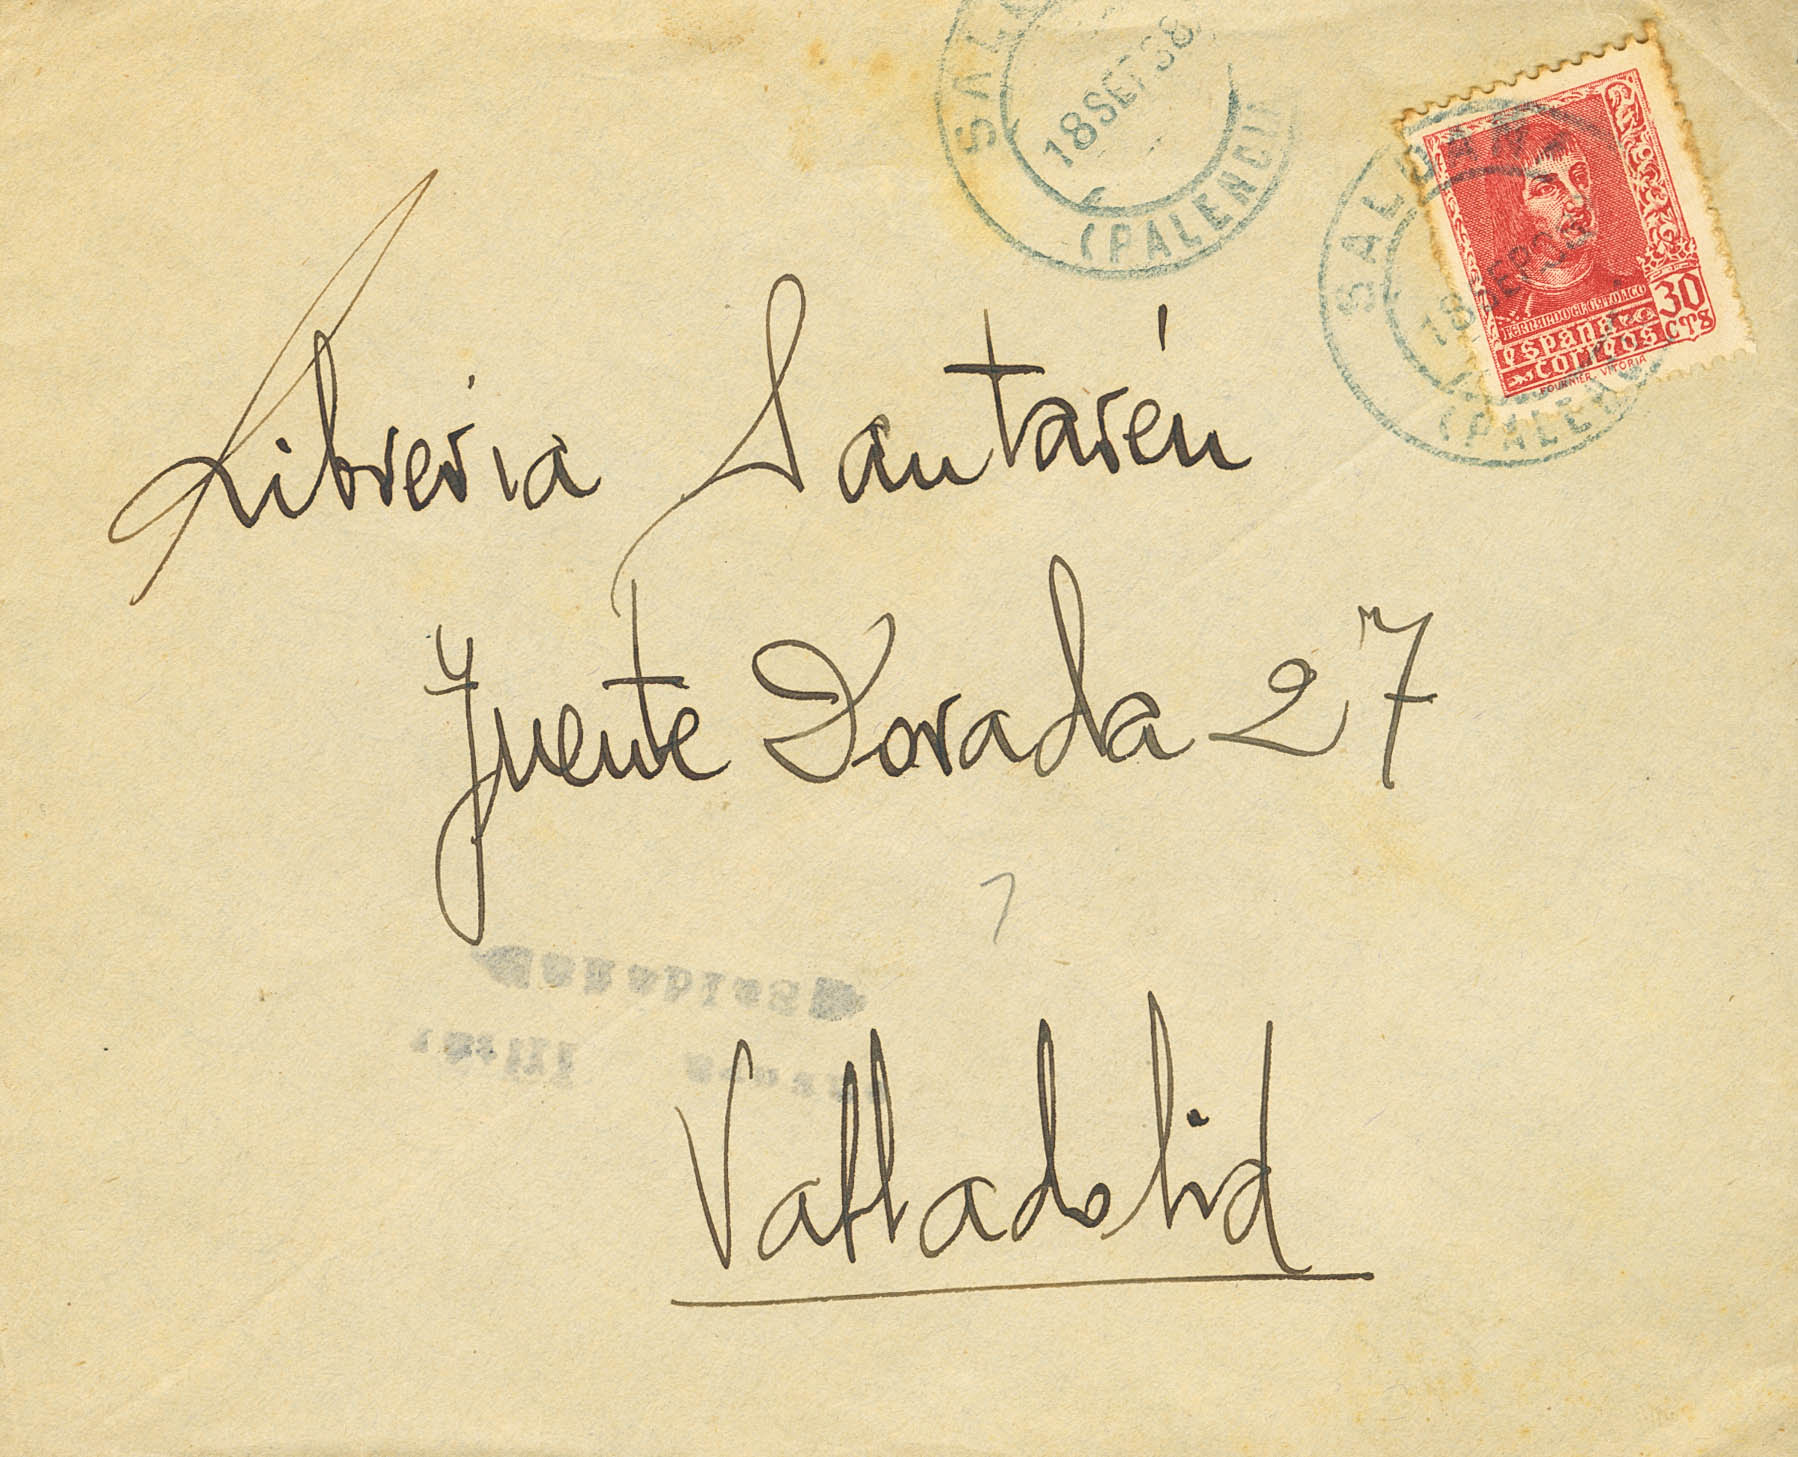 SALD
18 SEP 38
(PALENCIA
SALDAÑA
18 SEP 38
(PALENC
FERNANDO EL CATOLICO
30
CTS
españa
correos
FOURNIER. VITORIA
Libreria Santarén
Fuente Dorada 27
7
Valladolid